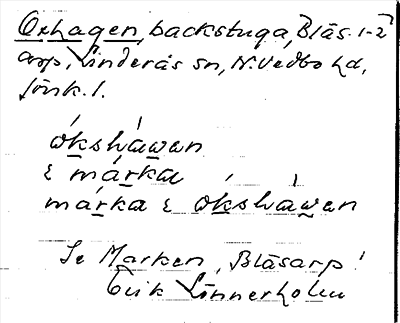 Oxhagen, backstuga, Blås. 1-2
arp, Linderås sn, N. Vedbo hd,
Jönk. l.
ókshàwan
ɛ márka
márka ɛ ókshàwan
Se Marken, Blåsarp!
Erik Linnerholm